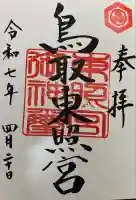 奉拝
鳥取東照宮
令和七年
四月二十日